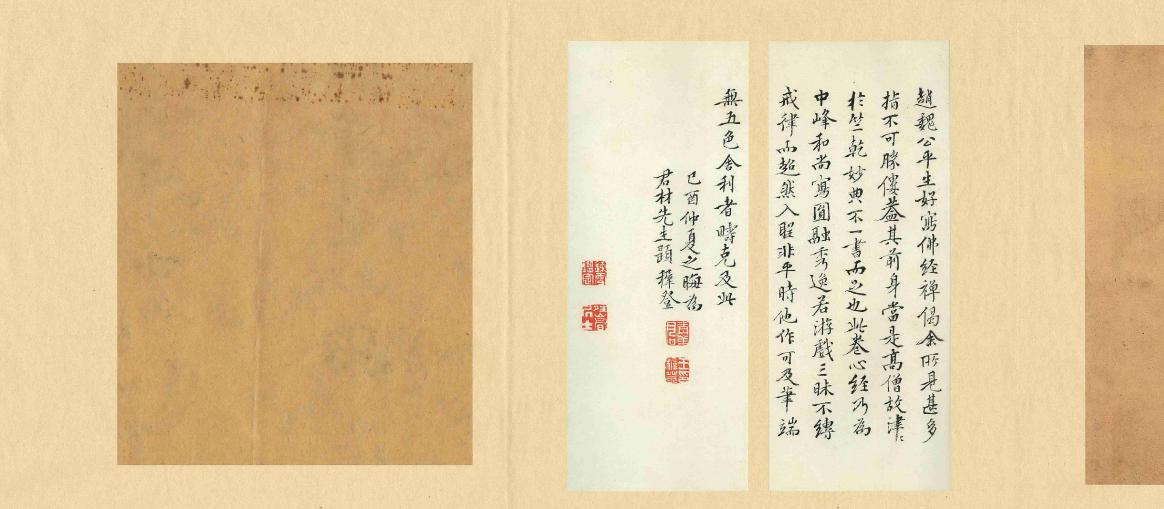 趙魏公平生好寫佛經禪偈余所見甚多
指不可勝僂蓋其前身當是高僧故津〻
於竺乾妙典不一書而足也此卷心經乃為
中峰和尚寫圓融秀逸若游戲三昧不縛
戒律而超然入聖非平時他作可及筆端
無五色舍利者疇克及此
己酉仲夏之晦為
君材先生題穉登